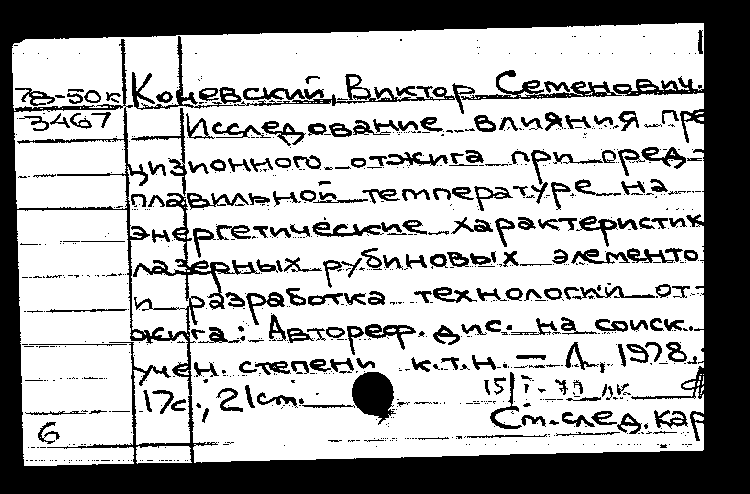 78-50к Коневский, Виктор Семенович.
3467 Исследование влияния пре
цизионного отжига при пред-
плавильной температуре на
энергетические характеристик
лазерных рубиновых элементо
и разработка технологии от-
жига: Автореф. дис. на соиск.
учен. степени к.т.н. — Л, 1978.
17с., 21см. 15/I-79 лк
6 См. след. кар